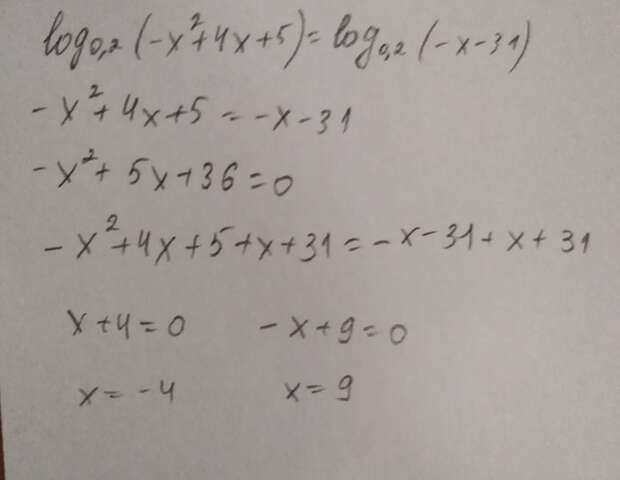 log₀,₂(-x²+4x+5)=log₀,₂(-x-31)
-x²+4x+5=-x-31
-x²+5x+36=0
-x²+4x+5+x+31=-x-31+x+31
x+4=0 -x+9=0
x=-4 x=9